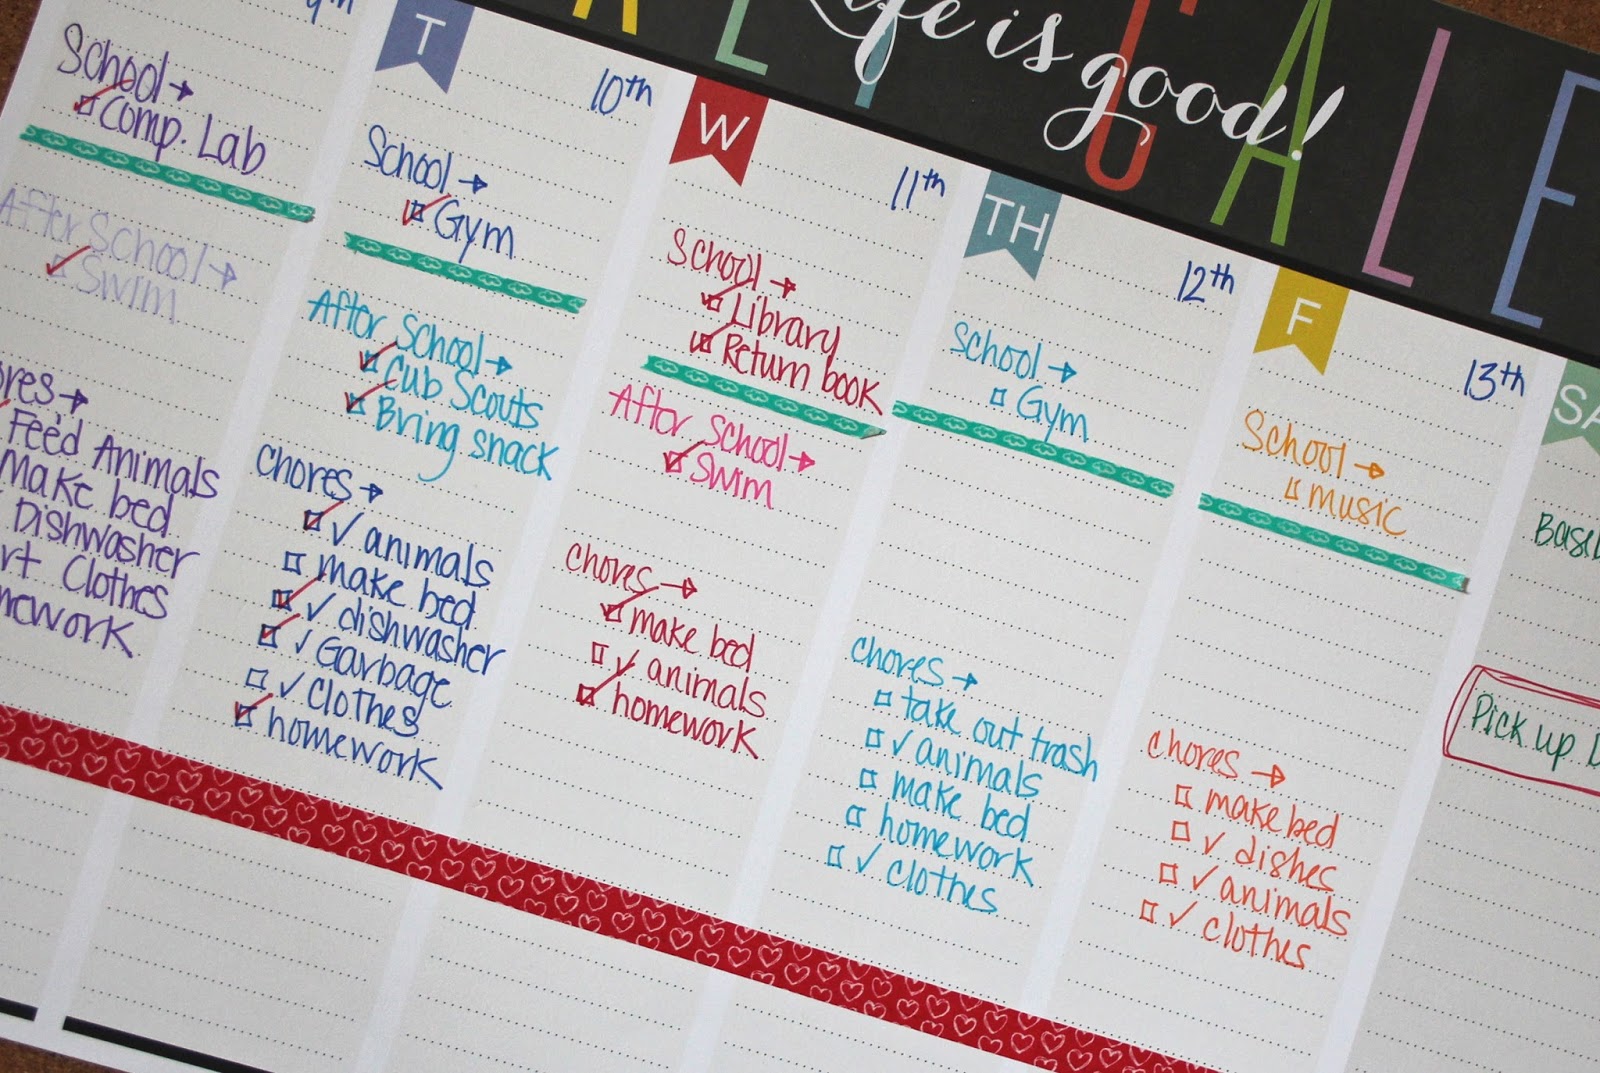 Life is good!
CALE
9th
School →
Comp. Lab
After School →
Swim
ores →
Feed Animals
Make bed
Dishwasher
rt Clothes
mework
T
10th
School →
Gym
After School →
Cub Scouts
Bring snack
Chores →
✓ animals
make bed
✓ dishwasher
✓ Garbage
✓ Clothes
homework
W
11th
School →
Library
Return book
After School →
Swim
chores →
make bed
✓ animals
homework
TH
12th
School →
Gym
chores →
take out trash
✓ animals
make bed
homework
✓ clothes
F
13th
School →
music
chores →
make bed
✓ dishes
✓ animals
✓ clothes
SA
Baseb
Pick up D